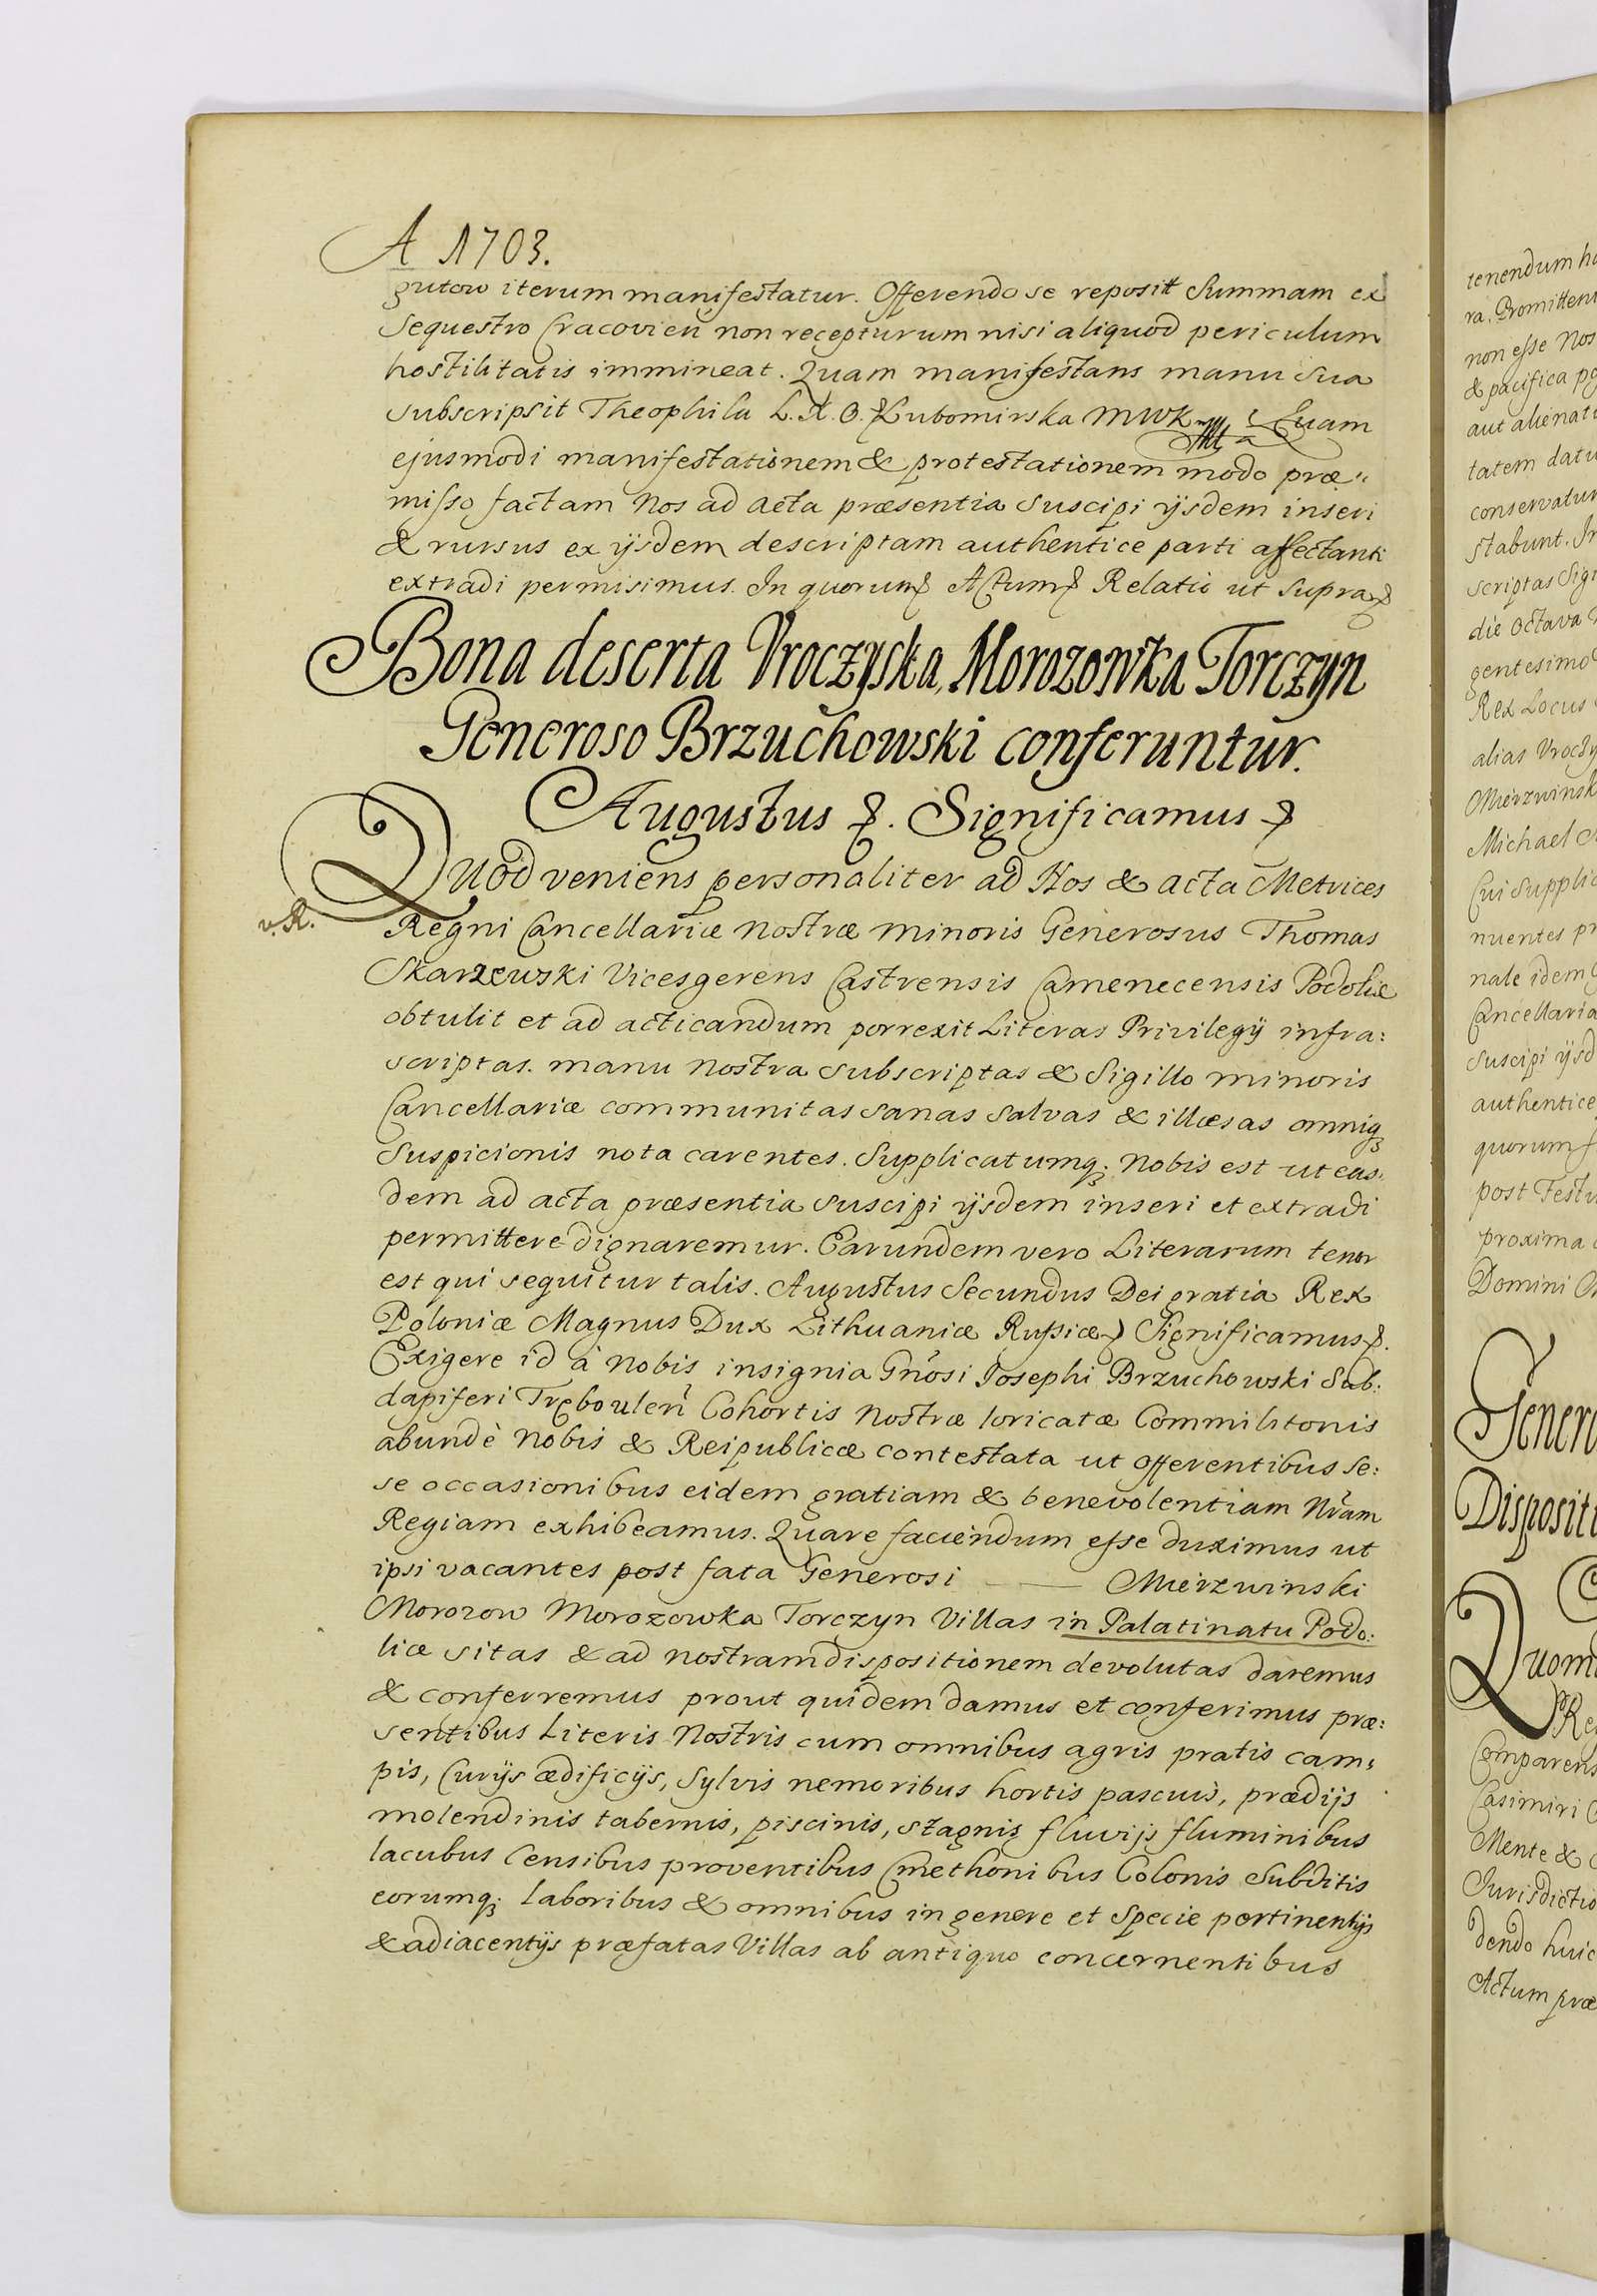 A 1703.
gutow iterum manifestatur. Offerendo se reposit Summam ex
Sequestro Cracovien non recepturum nisi aliquod periculum
hostilitatis immineat. Quam manifestans manu sua
subscripsit Theophila L. X. O. Lubomirska MWK Quam
ejusmodi manifestationem & protestationem modo præ„
misso factam Nos ad Acta præsentia suscipi ijsdem inseri
& rursus ex ijsdem descriptam authentice parti affectanti
extradi permisimus. In quorum Actum Relatio ut supra
Bona deserta Vroczyska, Morozowka Torczyn
Generoso Brzuchowski conferuntur.
Augustus . Significamus
Quod veniens personaliter ad Nos & acta Metrices
v. R. Regni Cancellariæ Nostræ minoris Generosus Thomas
Skarzewski Vicesgerens Castrensis Camenecensis Podoliæ
obtulit et ad acticandum porrexit Literas Privilegij infra:
scriptas. manu nostra subscriptas & Sigillo minoris
Cancellariæ communitas sanas salvas & illæsas omniq
suspicionis nota carentes. Supplicatumq; Nobis est ut eas„
dem ad acta præsentia suscipi ijsdem inseri et extradi
permittere dignaremur. Earundem vero Literarum tenor
est qui sequitur talis. Augustus Secundus Dei gratia Rex
Poloniæ Magnus Dux Lithuaniæ Russiæ Significamus.
Exigere id à Nobis insignia Gnosi Josephi Brzuchowski Sub:
dapiferi Trębouleñ Cohortis Nostræ loricatæ Commilitonis
abundè Nobis & Reipublicæ contestata ut offerentibus se:
se occasionibus eidem gratiam & benevolentiam Nram
Regiam exhibeamus. Quare faciendum esse duximus ut
ipsi vacantes post fata Generosi —— Mierzwinski
Morozow Morozowka Torczyn Villas in Palatinatu Podo:
liæ sitas & ad nostram dispositionem devolutas daremus
& conferremus prout quidem damus et conferimus præ:
sentibus Literis Nostris cum omnibus agris pratis cam„
pis, Curijs ædificijs, sylvis nemoribus hortis pascuis, prædijs
molendinis tabernis, piscinis, stagnis fluvijs fluminibus
lacubus Censibus proventibus Cmethonibus Colonis Subditis
eorumq; laboribus & omnibus in genere et Specie pertinentijs
& adiacentijs præfatas Villas ab antiquo concernentibus
tenendum
ra. Promitten
non esse Nos
& pacifica
aut alienat
tatem datu
conservatur
stabunt. In
scriptas Sig
die Octava
gentesimo
Rex Locus
alias Vroczy
Mierzwinsk
Michael
Cui Supplic
nuentes pr
nale idem
Cancellaria
suscipi ijsd
authentice
quorum
post Festu
proxima
Domini
Genero
Disposit
Quom
Re
Comparens
Casimiri
Mente &
Jurisdictio
dendo huic
Actum præ